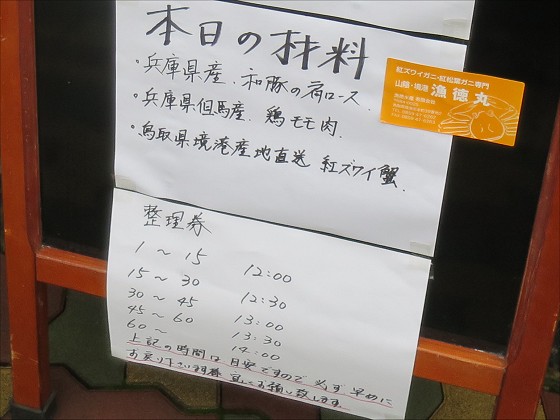 本日の材料
・兵庫県産、和豚の肩ロース
・兵庫県但馬産、鶏モモ肉.
・鳥取県境港産地直送 紅ズワイ蟹.
紅ズワイガニ・紅松葉ガニ専門
山陰・境港 漁徳丸
整理券
1～15 12:00
15～30 12:30
30～45 13:00
45～60 13:30
60～ 14:00
上記の時間は目安ですので必ず早めに
お戻り下さいます様 宜しくお願い致します